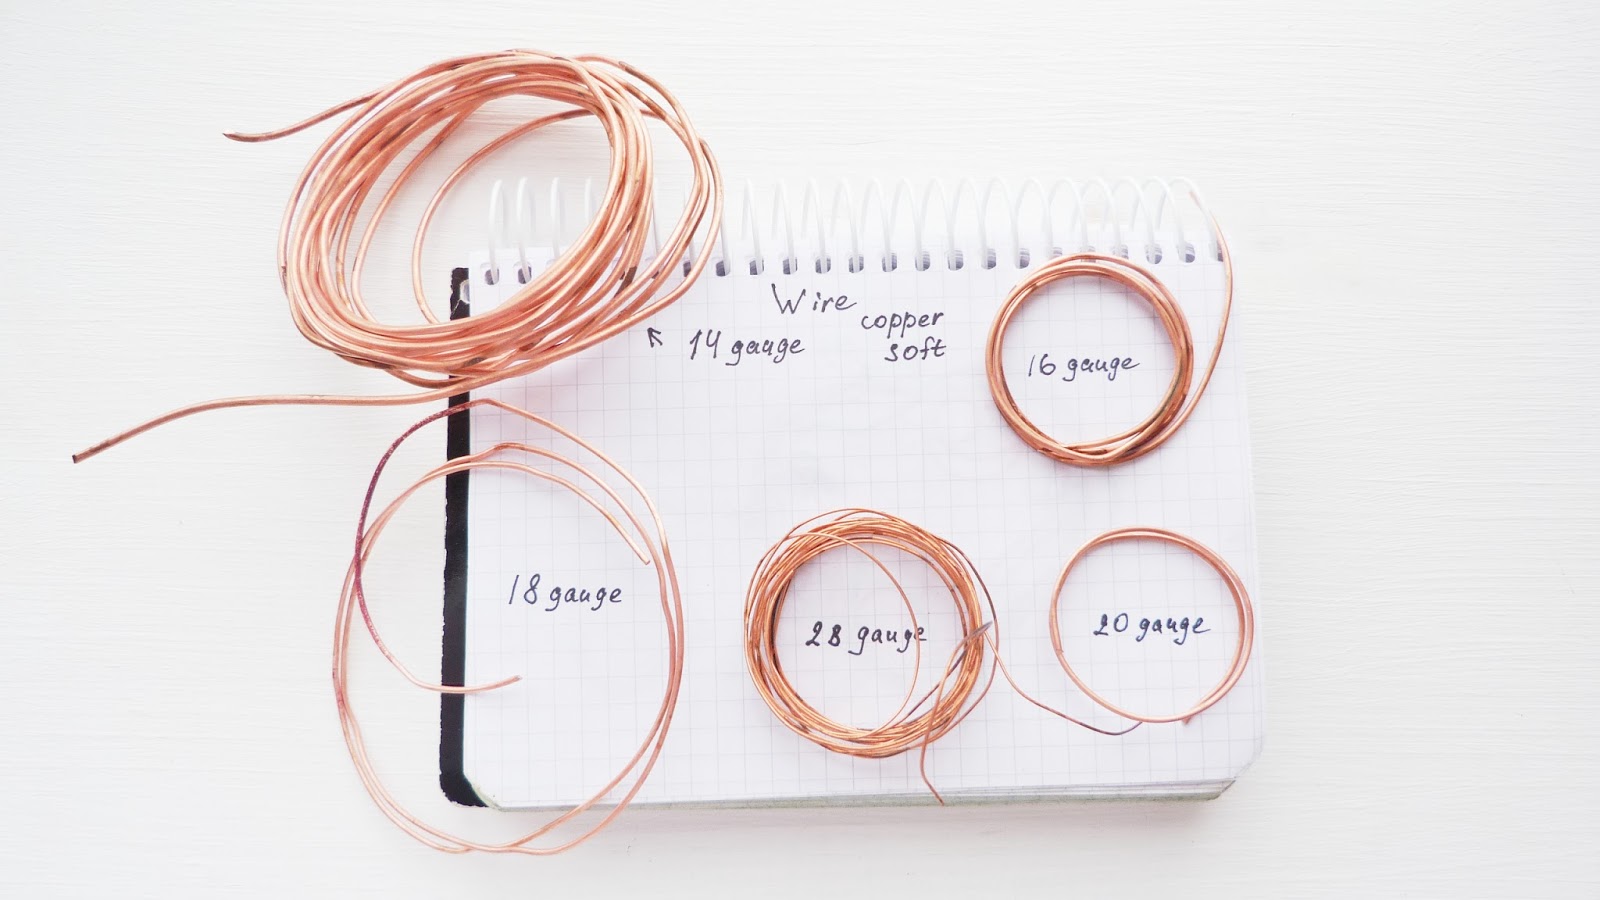 Wire
copper
soft
14 gauge
16 gauge
18 gauge
28 gauge
20 gauge